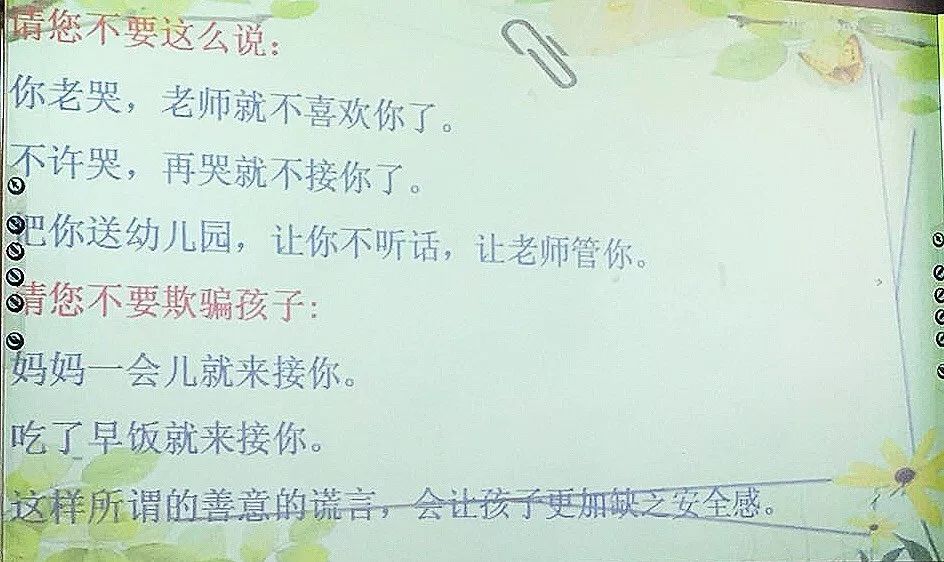 请您不要这么说：
你老哭，老师就不喜欢你了。
不许哭，再哭就不接你了。
把你送幼儿园，让你不听话，让老师管你。
请您不要欺骗孩子：
妈妈一会儿就来接你。
吃了早饭就来接你。
这样所谓的善意的谎言，会让孩子更加缺之安全感。